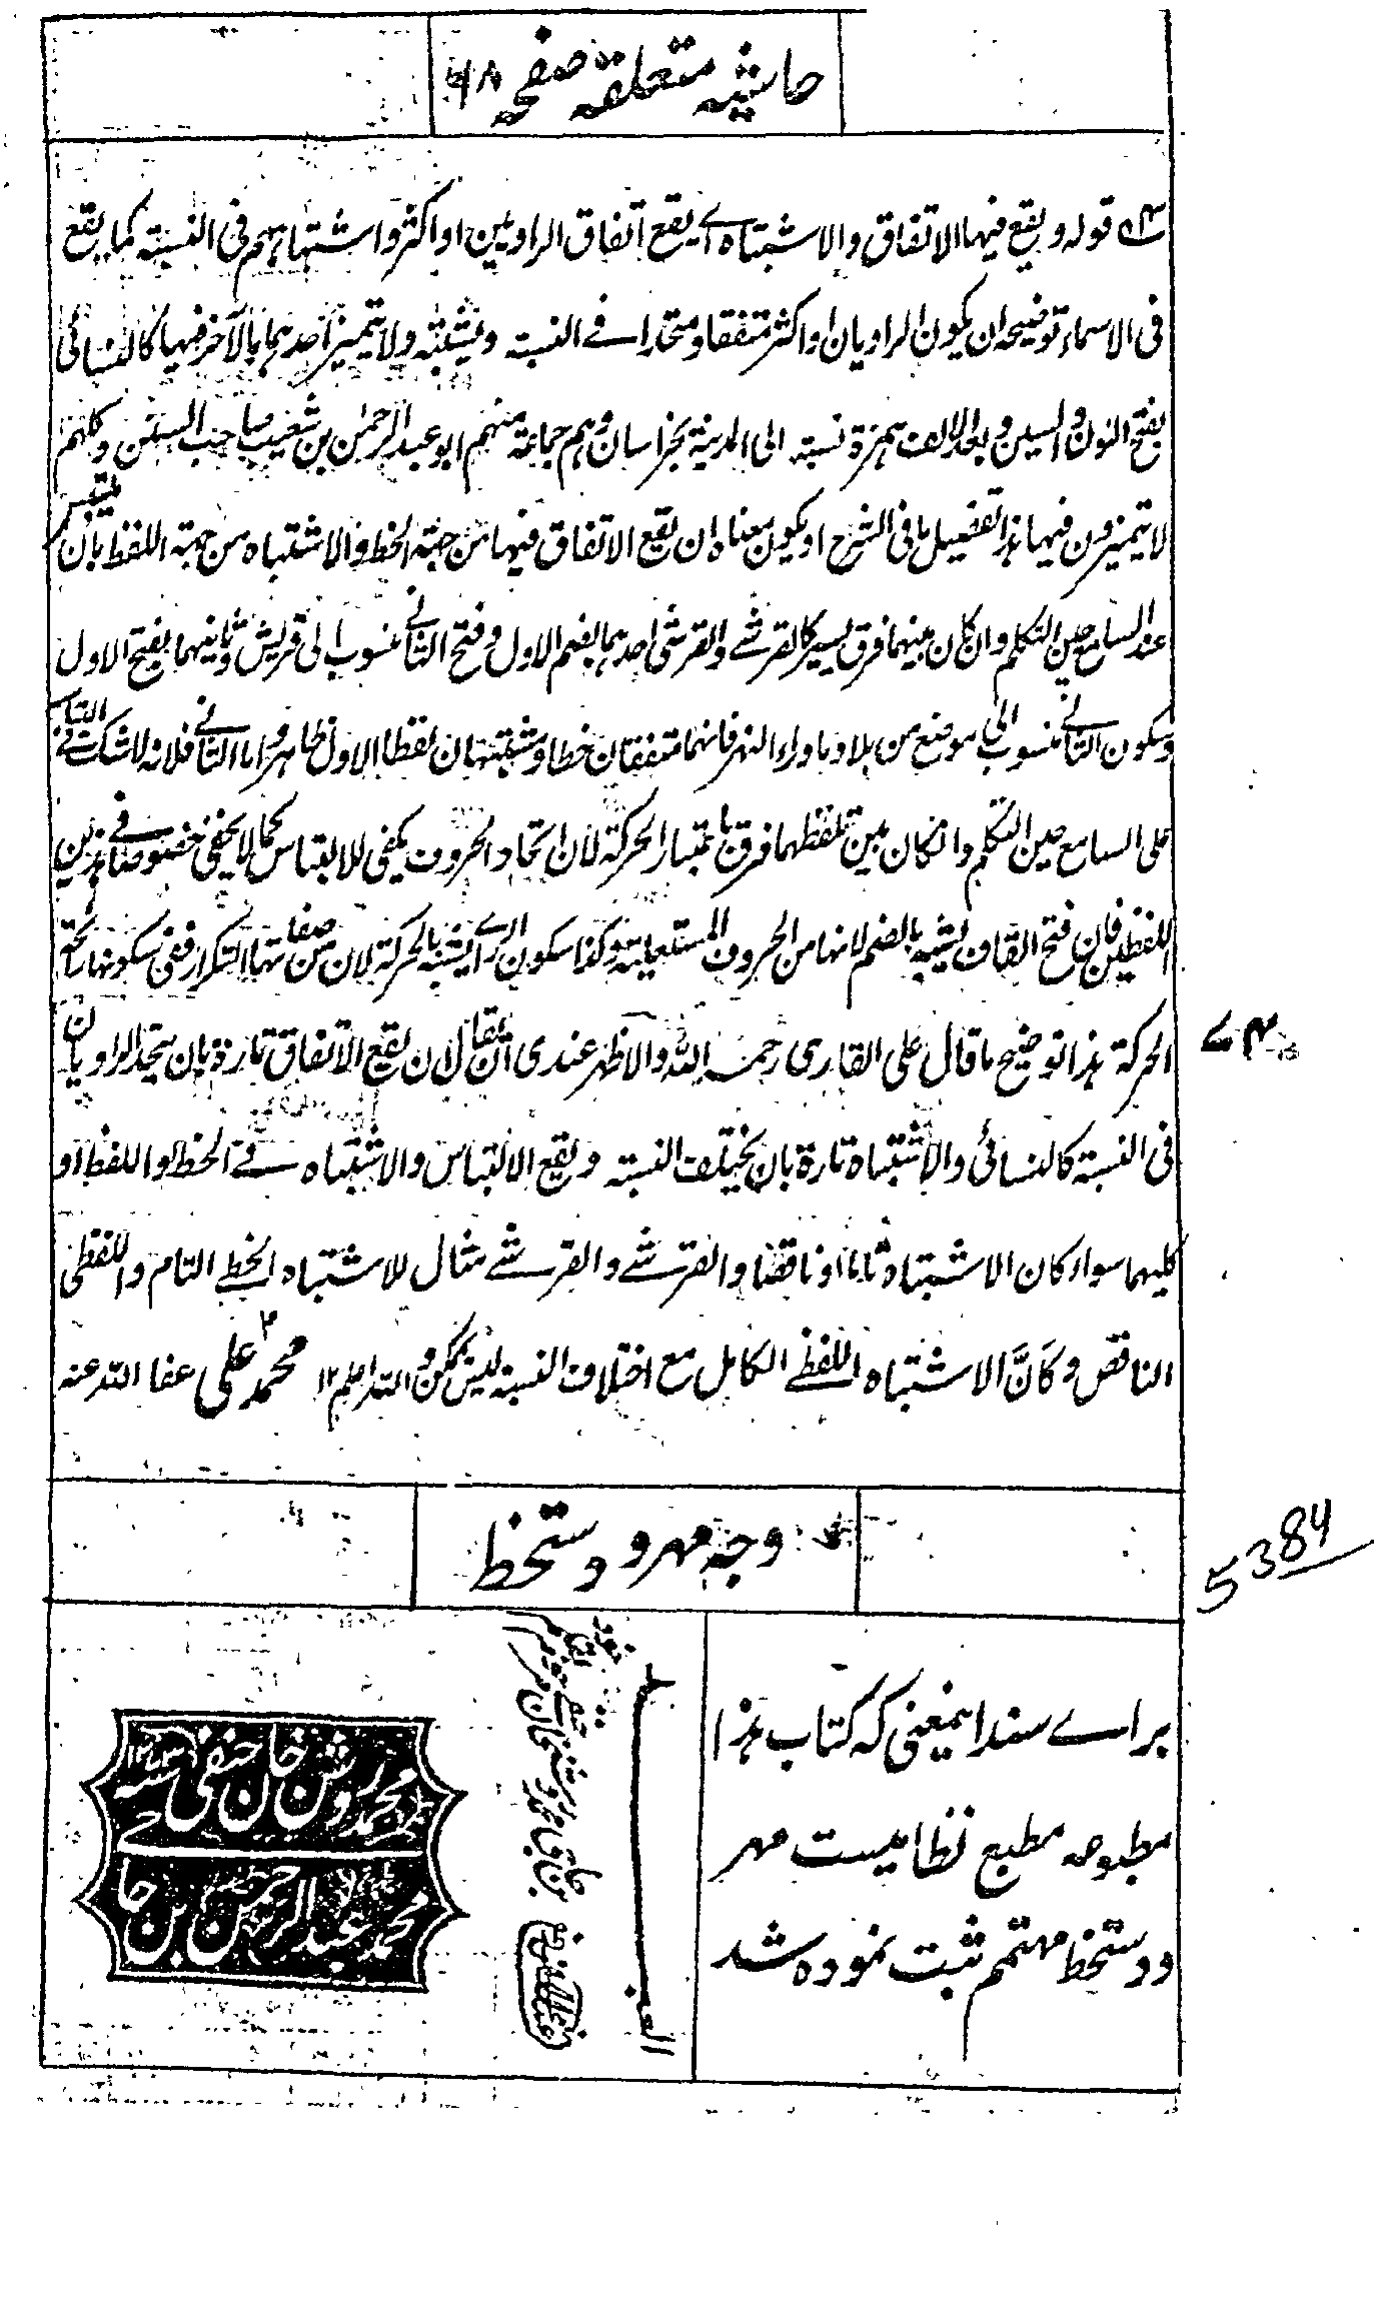 حاشیہ متعلقہ صفحہ ۶۸
قوله ويقع فيها الاتفاق والاشتباه اے يقع اتفاق الراويين او اكثر واشتباههم فى النسبة كما يقع
فى الاسماء توضيحه ان يكون الراويان او اكثر متفقا ومتحدا فے النسبة ويشتبه ولا يتميز احدهما بالآخر فيها كالنسائى
بفتح النون والسين وبعد الالف همزة نسبة الى المدينة بخراسان وهم جماعة منهم ابو عبد الرحمٰن بن شعيب صاحب السنن وكلهم
لا يتميزون فيها هذا تفصيل ما فى الشرح او يكون معناه ان يقع الاتفاق فيها من جهة الخط والاشتباه من جهة اللفظ بان يلتبس
عند السامع حين التكلم وان كان بينهما فرق يسير كالقرشے والقرشى احدهما بضم الاول وفتح الثانے منسوب الى قريش وثانيهما بفتح الاول
وسكون الثانے منسوب الى موضع من بلاد ماوراء النهر فانهما متفقان خطا ومشتبهان لفظا الاول ظاهر واما الثانے فلانه لا شك فے التباسه
على السامع حين التكلم وان كان بين تلفظهما فرق باعتبار الحركة لان اتحاد الحروف يكفى للالتباس كما لا يخفى خصوصا فے هذين
اللفظين فان فتح القاف يشبه بالضم لانها من الحروف المستعلية وكذا سكون الراے يشبه بالحركة لان من صفاتها التكرار ففى سكونها رائحة
الحركة هذا توضيح ما قال على القارى رحمه الله والاظهر عندى ان يقال ان يقع الاتفاق تارة بان يتحد الراويان
فى النسبة كالنسائى والاشتباه تارة بان يختلف النسبة ويقع الالتباس والاشتباه فے الخط او اللفظ او
كليهما سواء كان الاشتباه تاما او ناقصا والقرشے والقرشے مثال للاشتباه الخطے التام واللفظى
الناقص وكَانَّ الاشتباه اللفظے الكامل مع اختلاف النسبة ليس بممكن والله اعلم ۱۲ محمد على عفا الله عنه
وجہ مہر و دستخط
5384
براے سند اینمعنی کہ کتاب ہذا
مطبوعہ مطبع نظامیست مہر
ودستخط مہتمم ثبت نمودہ شد
العبد
محمد روشن خان حنفی
محمد عبد الرحمن بن حاجی